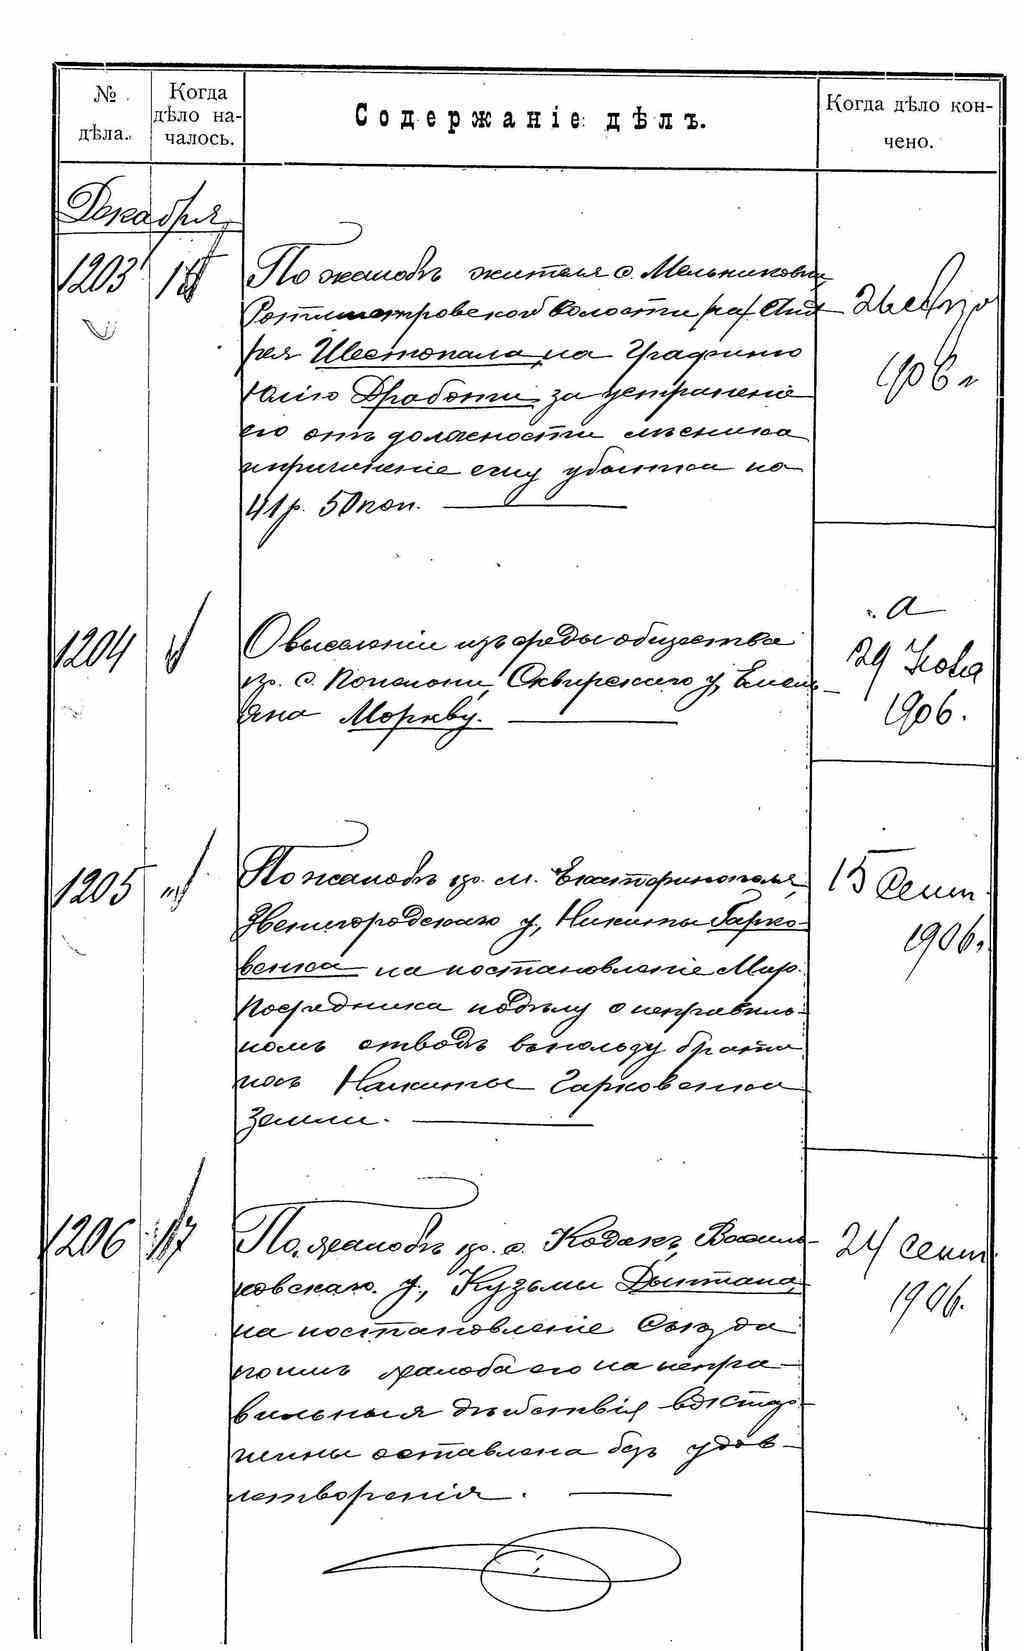 № дѣла.
Когда дѣло началось.
Содержаніе дѣлъ.
Когда дѣло кончено.
Декабря
1203
По жалобѣ жителя с. Мельниковки,
Ротмистровской волости Анд
рея Шестопала, на Графиню
Юлію Дработи за устраненіе
его отъ должности лѣсника
и причиненіе ему убытка на
41 р. 50 коп.
26
1906 г
1204
О выселеніи изъ среды общества
кр. с. Попельни, Сквирскаго у, Емель
яна Моркву.
29 Ноя
1906.
1205
По жалобѣ кр. м. Екатеринополя,
Звенигородскаго у., Никиты Гарко-
венка на постановленіе Мир.
Посредника по дѣлу о неправиль-
номъ отводѣ въ пользу брата
Никиты Гарковенка
земли.
15 Сент.
1906 г.
1206
17
По жалобѣ кр. с. Кодакъ, Василь-
ковскаго у., Кузьмы
на постановленіе Съѣзда
коимъ жалоба его на непра-
вильныя дѣйствія
оставлена безъ удов-
летворенія.
24 сент.
1906.